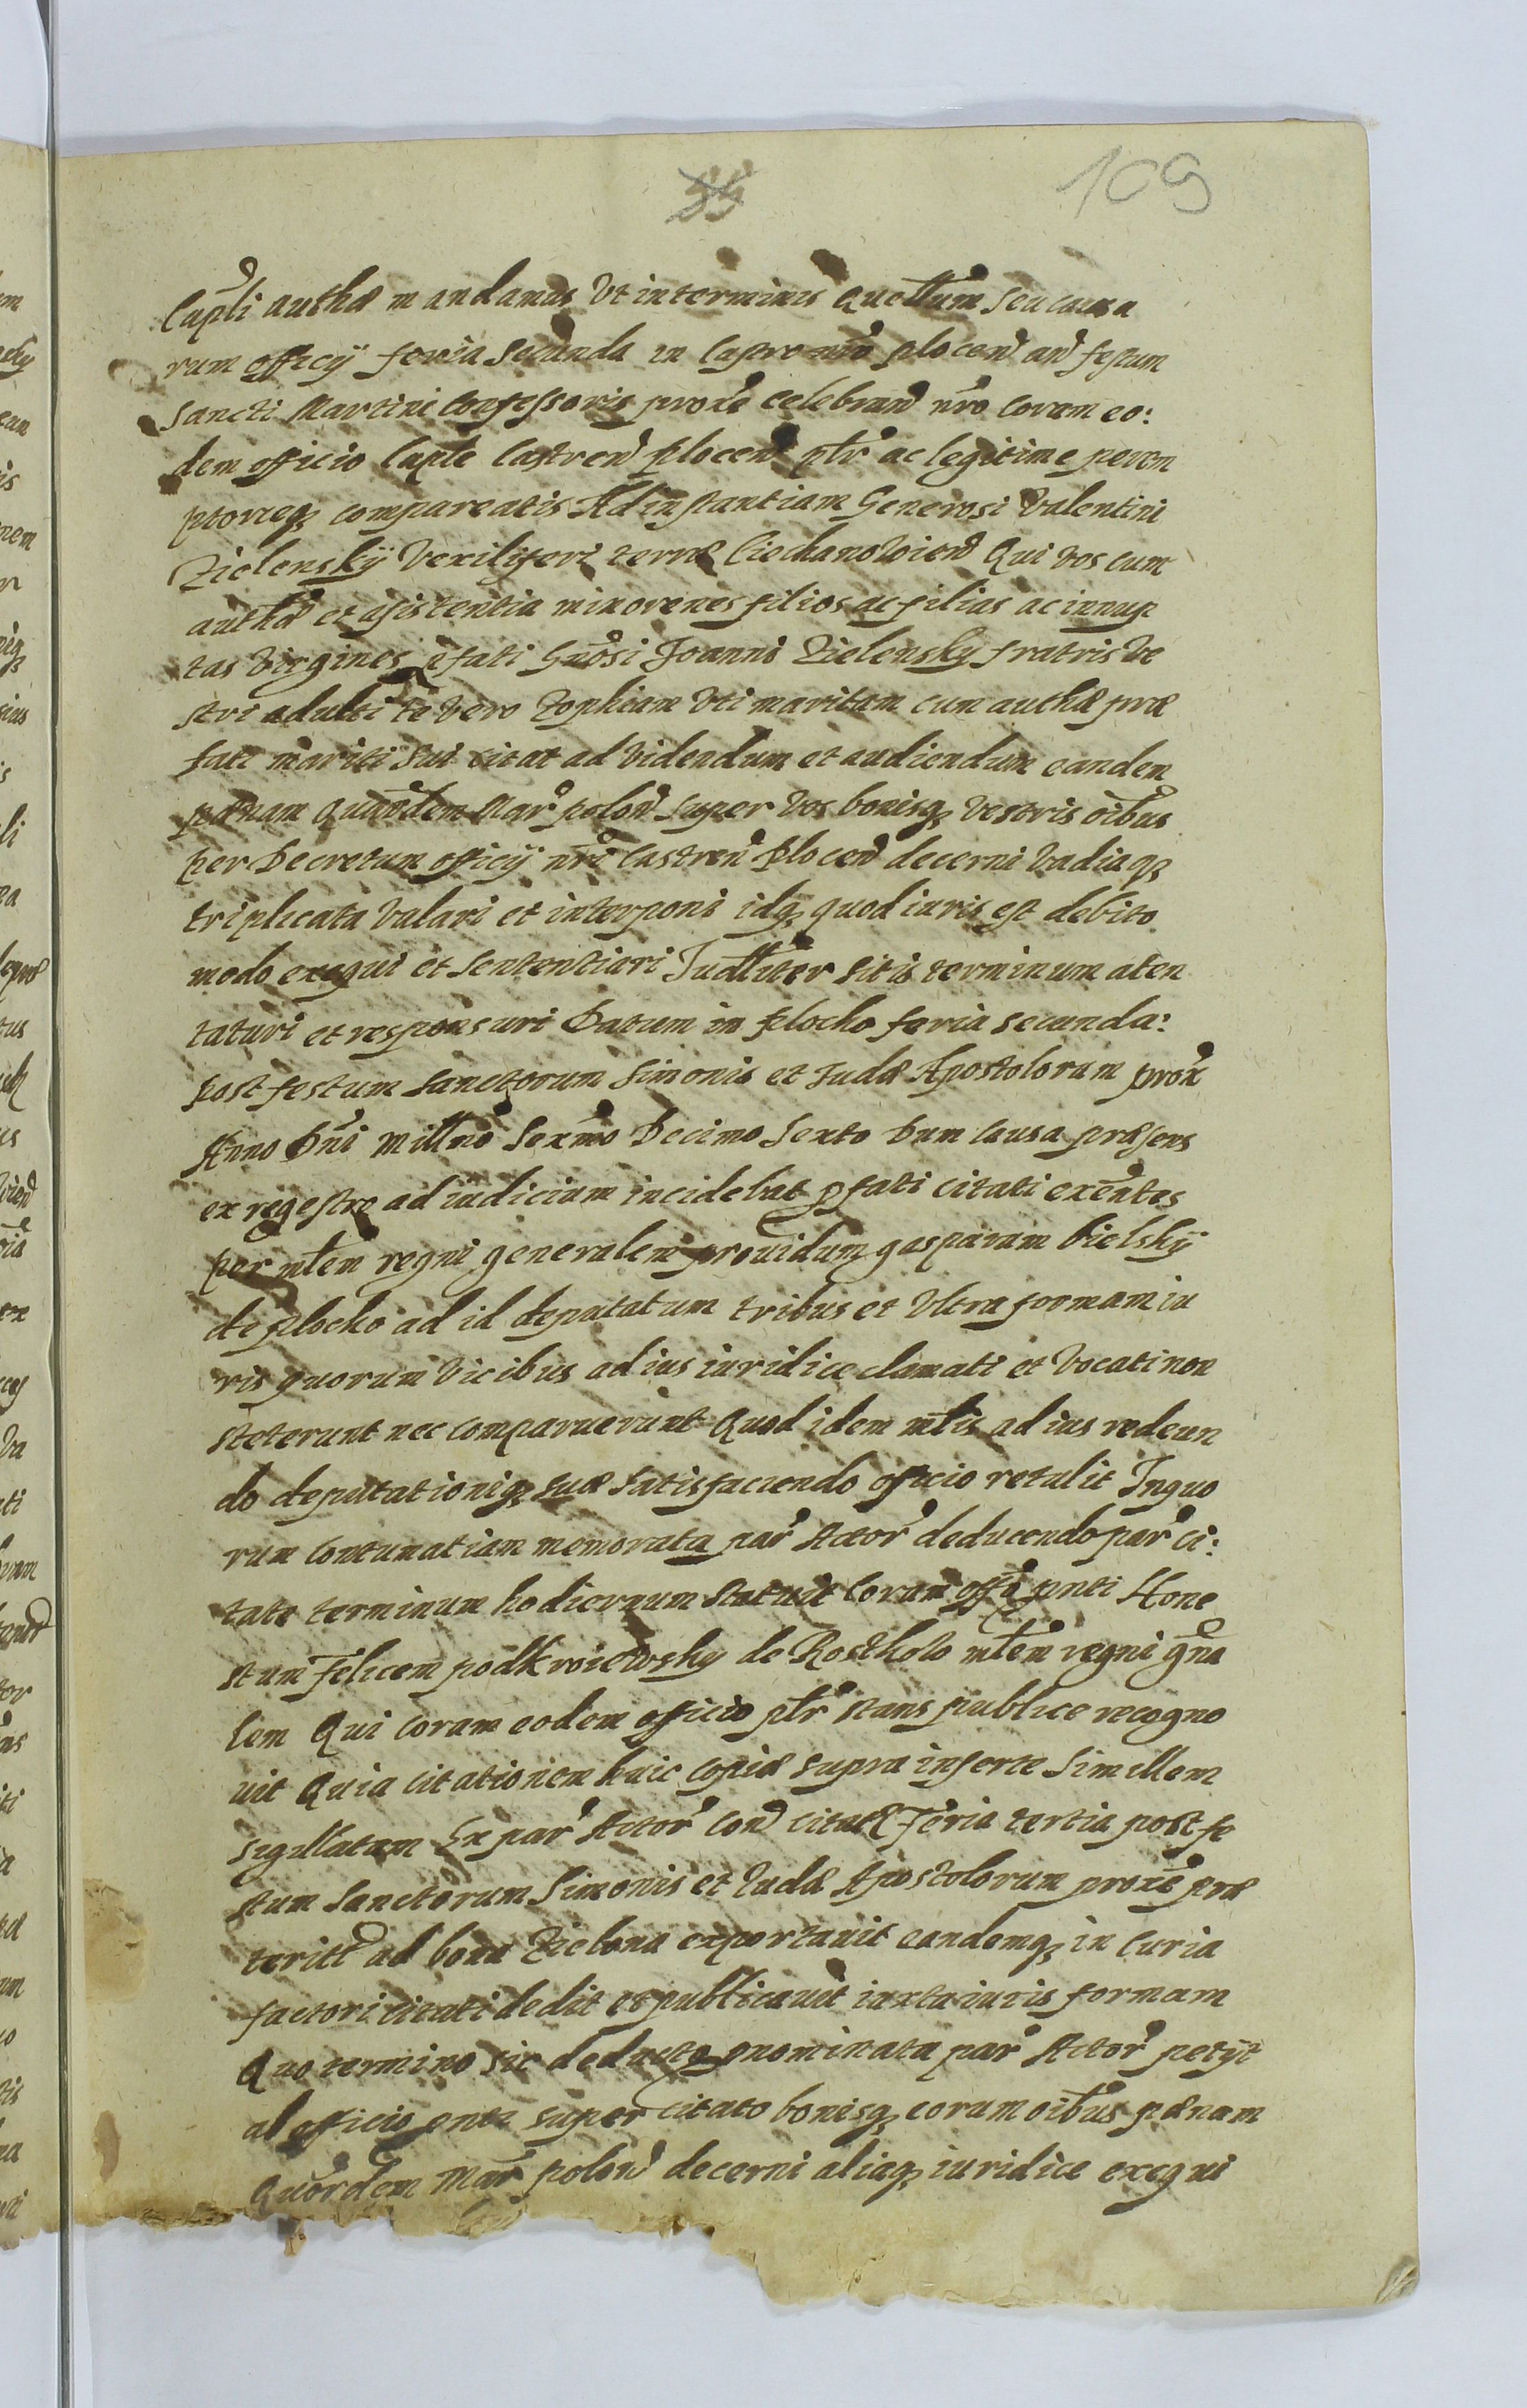 109
Capli authæ mandamus Vt interminis Querellarum seu causa
rum officÿ feria Secunda in Castro nro plocen an festum
Sancti Martini Confessoris proxe celebrand nro Coram eo:
dem officio Capte Castren plocen plr ac legitime perem
ptorieq compareatis Ad instantiam Generosi Valentini
Zielenskÿ Vexiliferi terræ Ciechanovien Qui vos cum
authæ et asistentia minorenes filios ac filias ac innup
tas Virgines pfati Gnosi Joanni Zielensky fratris Ve
stri adulti te vero Zophiam Vti maritam cum authæ præ
fati mariti Sui citat ad Videndum et audiendum eandem
pænam Quatdem Mar polon Super Vos bonisq Vestris oibus
per Decretum officÿ nri Castren Plocen decerni Vadiaq
triplicata Valari et interponi idq quod iuris est debito
modo exequi et Sententiari Judliter Sitis terminum aten
taturi et responsuri Datum in Plocko feria secunda:
post festum Sanctorum Simonis et Judæ Apostolorum prox
Anno Dni Millno Sexmo Decimo Sexto Dum Causa præsens
ex regestro ad iudicium incidebat pfati citati exentes
per mlem regni generalem prouidum gasparum bielskÿ
de plocko ad id deputatum tribus et Vltra formam iu
ris quorum Vicibus ad ius iuridice clamati et Vocati non
steterunt nec comparuerunt Quod idem mlis ad ius redeun
do deputationiq suæ Satisfaciendo oficio retulit Inquo
rum Contumatiam memorata par Actor deducendo par ci:
tate terminum hodiernum Statuit Coram offo pnti Hone
stum Felicem podkroiewsky de Rostkolo mlem regni gna
lem Qui Coram eodem officio plr stans publice recogno
uit Quia citationem huic Copiæ supra inserte Simillem
sigillatam Ex par Actor Con citatæ Feria tertia post fe
stum Sanctorum Simonis et Judæ Apostolorum proxe præ
terit ad bona Zielona exportauit eandemq in Curia
factori citati dedit et publicauit iuxta iuris formam
Quo termino sic deducto pnominata par Actor petÿt
ab officio pnti super citato bonisq eorum oibus pænam
Quatdem Mar polon decerni aliaq iuridice exequi